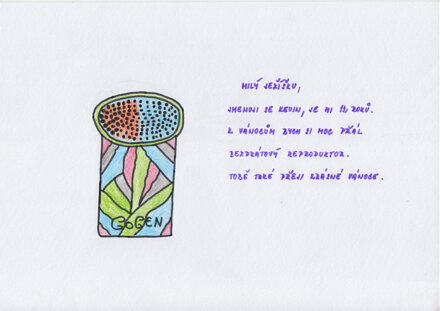 MILÝ JEŽÍŠKU,
JMENUJI SE KEVIN, JE MI 12 ROKŮ.
K VÁNOCŮM BYCH SI MOC PŘÁL
BEZDRÁTOVÝ REPRODUKTOR.
TOBĚ TAKÉ PŘEJI KRÁSNÉ VÁNOCE.
GOGEN